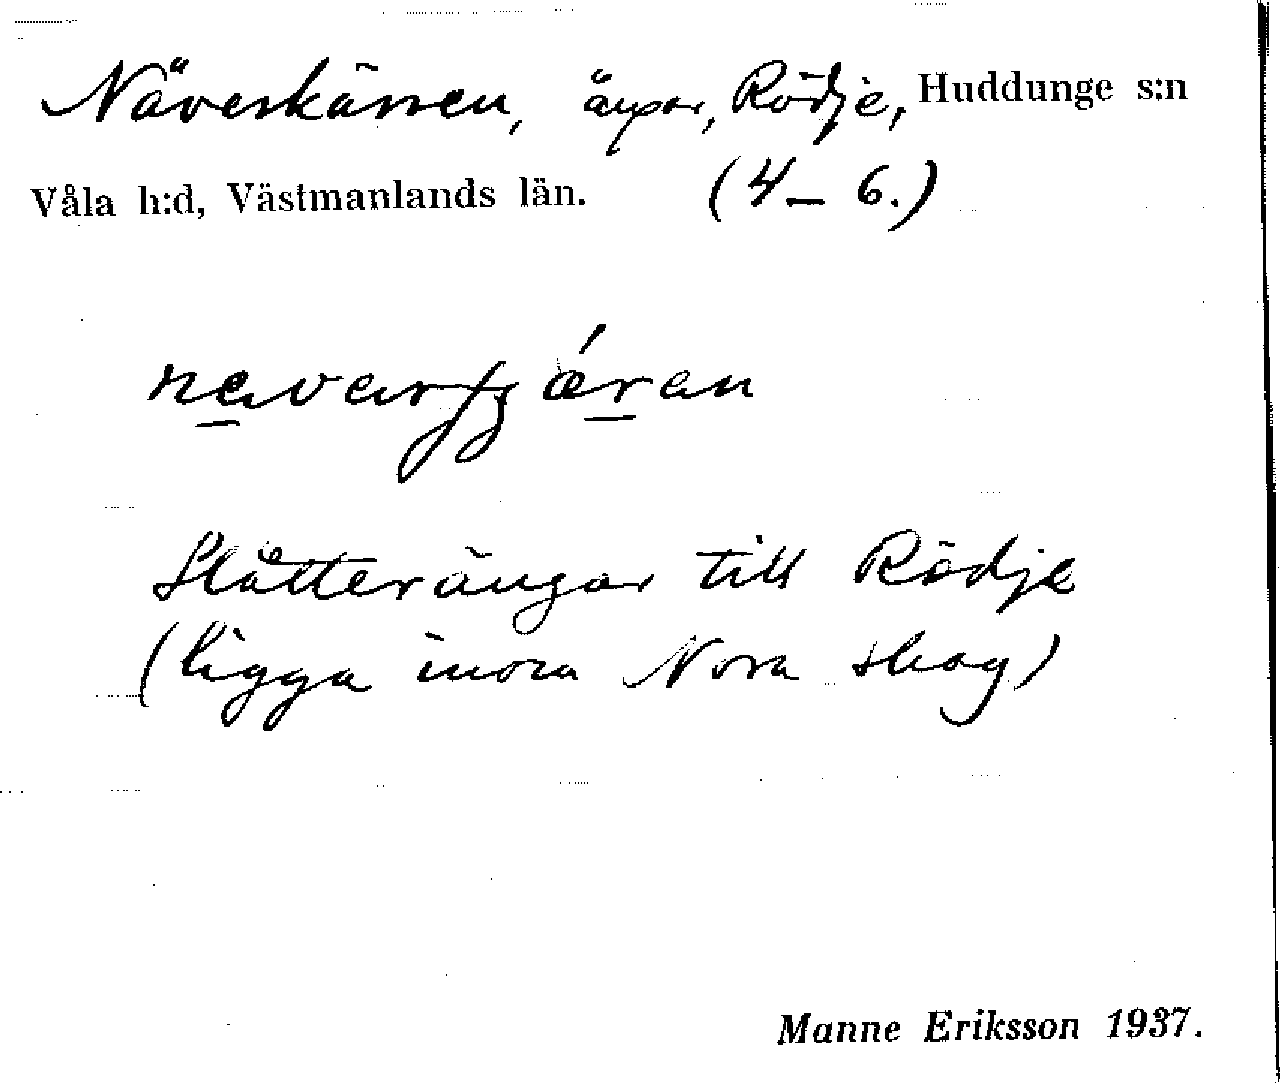 Näverkärren, ängar, Rödje, Huddunge s:n
Våla h:d, Västmanlands län. (4 – 6.)
Slåtterängar till Rödje
(ligga inora Nora skog)
Manne Eriksson 1937.